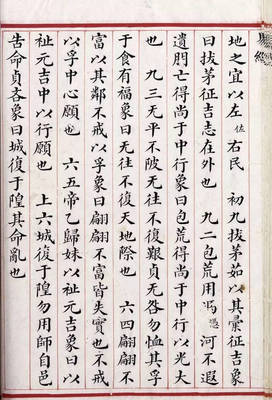 地之宜以左佐右民　初九拔茅茹以其彙征吉象
曰拔茅征吉志在外也　九二包荒用馮憑河不遐
遺朋亡得尚于中行象曰包荒得尚于中行以光大
也　九三无平不陂无往不復艱貞无咎勿恤其孚
于食有福象曰无往不復天地際也　六四翩翩不
富以其鄰不戒以孚象曰翩翩不富皆失實也不戒
以孚中心願也　六五帝乙歸妹以祉元吉象曰以
祉元吉中以行願也　上六城復于隍勿用師自邑
告命貞吝象曰城復于隍其命亂也